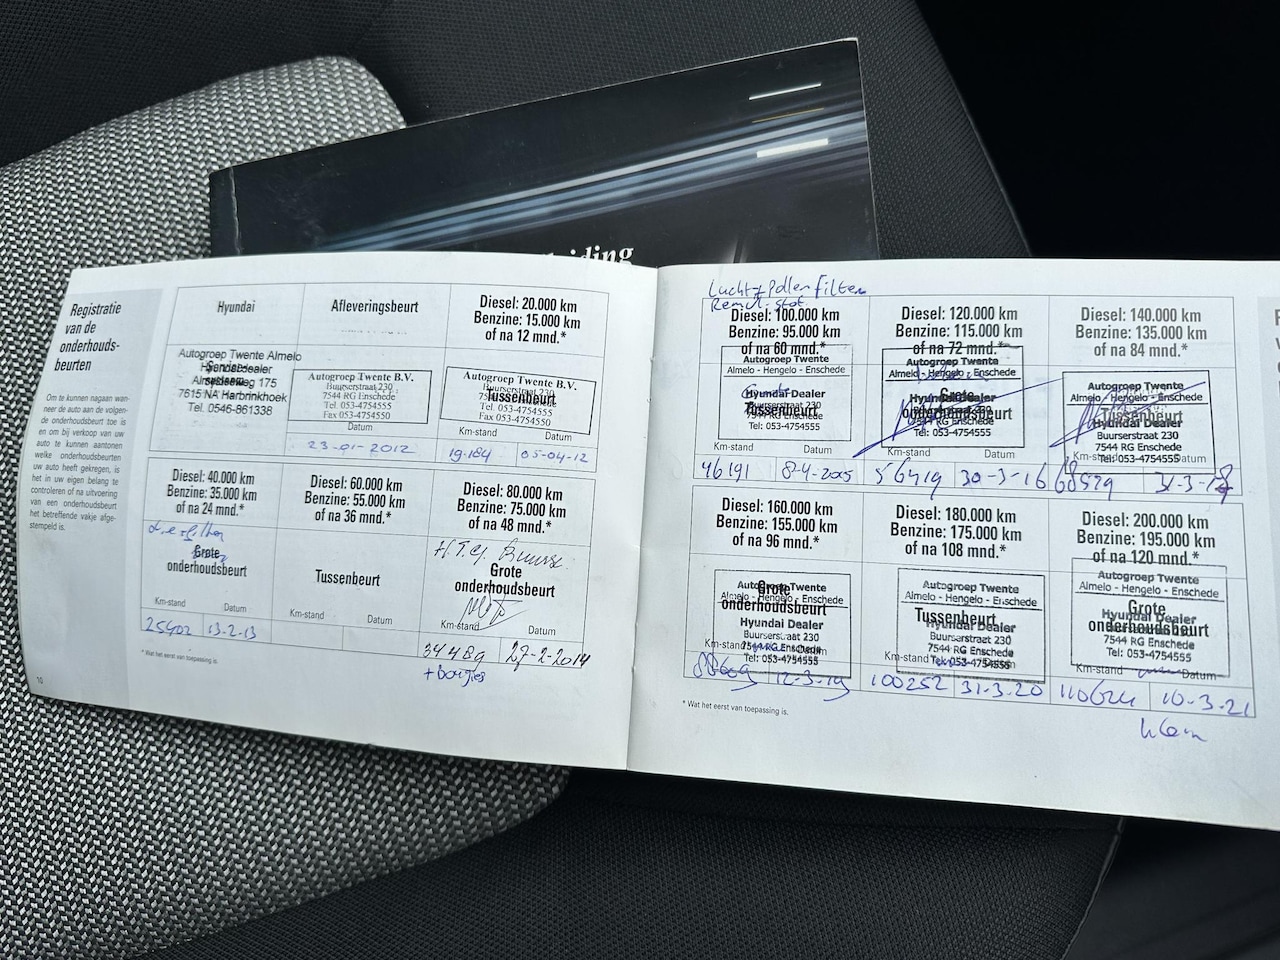 iding
Registratie
van de
onderhouds-
beurten
Om te kunnen nagaan wan-
neer de auto aan de volgen-
de onderhoudsbeurt toe is
en om bij verkoop van uw
auto te kunnen aantonen
welke onderhoudsbeurten
uw auto heeft gekregen, is
het in uw eigen belang te
controleren of na uitvoering
van een onderhoudsbeurt
het betreffende vakje afge-
stempeld is.
10
Hyundai
Autogroep Twente Almelo
Hyundai dealer
175
7615 NA Harbrinkhoek
Tel. 0546-861338
Afleveringsbeurt
Autogroep Twente B.V.
Buurserstraat 230
7544 RG Enschede
Tel. 053-4754555
Fax 053-4754550
Datum
23-01-2012
Diesel: 20.000 km
Benzine: 15.000 km
of na 12 mnd.*
Autogroep Twente B.V.
Buurserstraat 230
Tussenbeurt
7544 RG Enschede
Tel. 053-4754555
Fax 053-4754550
Km-stand Datum
19.184 05-04-12
Diesel: 40.000 km
Benzine: 35.000 km
of na 24 mnd.*
Grote
onderhoudsbeurt
Km-stand Datum
25402 13-2-13
Diesel: 60.000 km
Benzine: 55.000 km
of na 36 mnd.*
Tussenbeurt
Km-stand Datum
Diesel: 80.000 km
Benzine: 75.000 km
of na 48 mnd.*
Grote
onderhoudsbeurt
Km-stand Datum
34489 27-2-2014
+ bougies
* Wat het eerst van toepassing is.
Lucht + Pollen filter
Remvl.
Diesel: 100.000 km
Benzine: 95.000 km
of na 60 mnd.*
Autogroep Twente
Almelo - Hengelo - Enschede
Hyundai Dealer
Tussenbeurt
7544 RG Enschede
Tel: 053-4754555
Km-stand Datum
46191 8-4-2015
Diesel: 120.000 km
Benzine: 115.000 km
of na 72 mnd.*
Autogroep Twente
Almelo - Hengelo - Enschede
Hyundai Dealer
Grote
onderhoudsbeurt
7544 RG Enschede
Tel: 053-4754555
Km-stand Datum
56419 30-3-16
Diesel: 140.000 km
Benzine: 135.000 km
of na 84 mnd.*
Autogroep Twente
Almelo - Hengelo - Enschede
Tussenbeurt
Hyundai Dealer
Buurserstraat 230
7544 RG Enschede
Km-stand Tel: 053-4754555 Datum
68529
Diesel: 160.000 km
Benzine: 155.000 km
of na 96 mnd.*
Autogroep Twente
Grote
Almelo - Hengelo - Enschede
onderhoudsbeurt
Hyundai Dealer
Buurserstraat 230
7544 RG Enschede
Km-stand Datum
Tel: 053-4754555
12-3-19
Diesel: 180.000 km
Benzine: 175.000 km
of na 108 mnd.*
Autogroep Twente
Almelo - Hengelo - Enschede
Tussenbeurt
Hyundai Dealer
Buurserstraat 230
7544 RG Enschede
Km-stand Datum
Tel: 053-4754555
100252 31-3-20
Diesel: 200.000 km
Benzine: 195.000 km
of na 120 mnd.*
Autogroep Twente
Almelo - Hengelo - Enschede
Grote
Hyundai Dealer
onderhoudsbeurt
7544 RG Enschede
Tel: 053-4754555
Km-stand Datum
10-3-21
klein
* Wat het eerst van toepassing is.